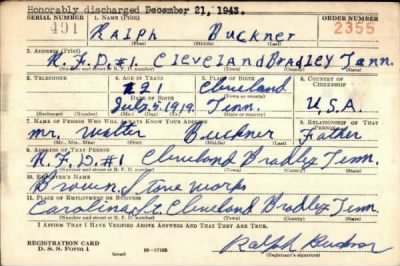 Honorably discharged December 21, 1943.
SERIAL NUMBER 1. NAME (Print) ORDER NUMBER
491 Ralph Buckner 2355
(First) (Middle) (Last)
2. ADDRESS (Print)
R.F.D.#1. Cleveland Bradley Tenn.
(Number and street or R. F. D. number) (Town) (County) (State)
3. TELEPHONE 4. AGE IN YEARS 5. PLACE OF BIRTH 6. COUNTRY OF CITIZENSHIP
22 Cleveland
DATE OF BIRTH (Town or county)
July 9, 1919. Tenn. U.S.A.
(Exchange) (Number) (Mo.) (Day) (Yr.) (State or country)
7. NAME OF PERSON WHO WILL ALWAYS KNOW YOUR ADDRESS 8. RELATIONSHIP OF THAT PERSON
Mr. Walter Buckner Father
(Mr., Mrs., Miss) (First) (Middle) (Last)
9. ADDRESS OF THAT PERSON
R.F.D.#1 Cleveland Bradley Tenn.
(Number and street or R. F. D. number) (Town) (County) (State)
10. EMPLOYER'S NAME
Brown Stove Works
11. PLACE OF EMPLOYMENT OR BUSINESS
Carolina St. Cleveland Bradley Tenn
(Number and street or R. F. D. number) (Town) (County) (State)
I AFFIRM THAT I HAVE VERIFIED ABOVE ANSWERS AND THAT THEY ARE TRUE.
REGISTRATION CARD
D. S. S. Form 1 (over) 16-17105 Ralph Buckner
(Registrant's signature)